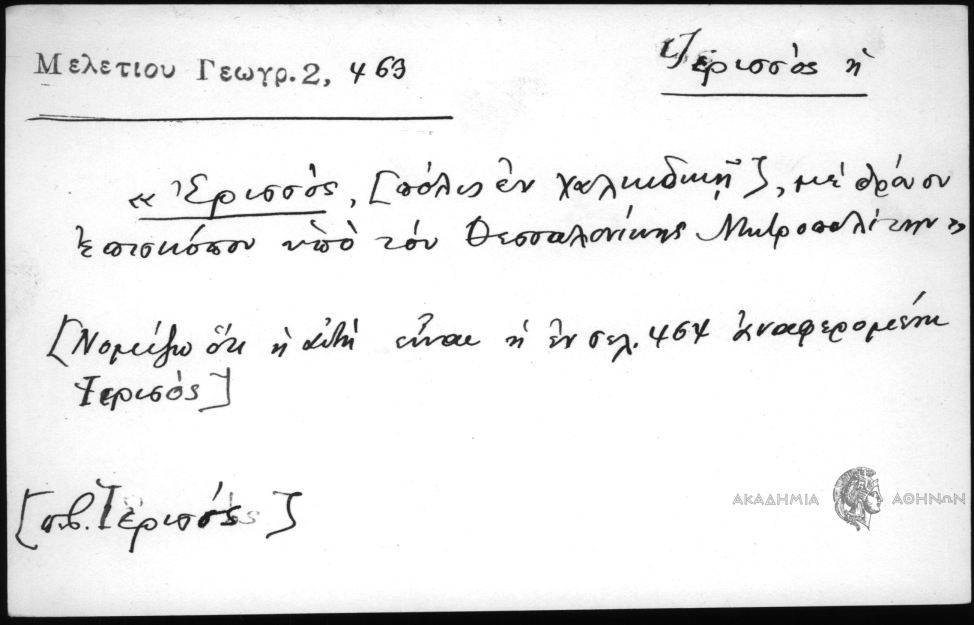 Μελετίου Γεωγρ. 2, 463
Ἱερισσὸς ἡ
« Ἐρισσὸς, [πόλις ἐν Χαλκιδικῇ], μὲ θρόνον
Ἐπισκόπου ὑπὸ τὸν Θεσσαλονίκης Μητροπολίτην »
[Νομίζω ὅτι ἡ αὐτὴ εἶναι ἡ ἐν σελ. 464 ἀναφερομένη
Ἱερισὸς]
[π.β. Ἱερισός]
ΑΚΑΔΗΜΙΑ ΑΘΗΝΩΝ